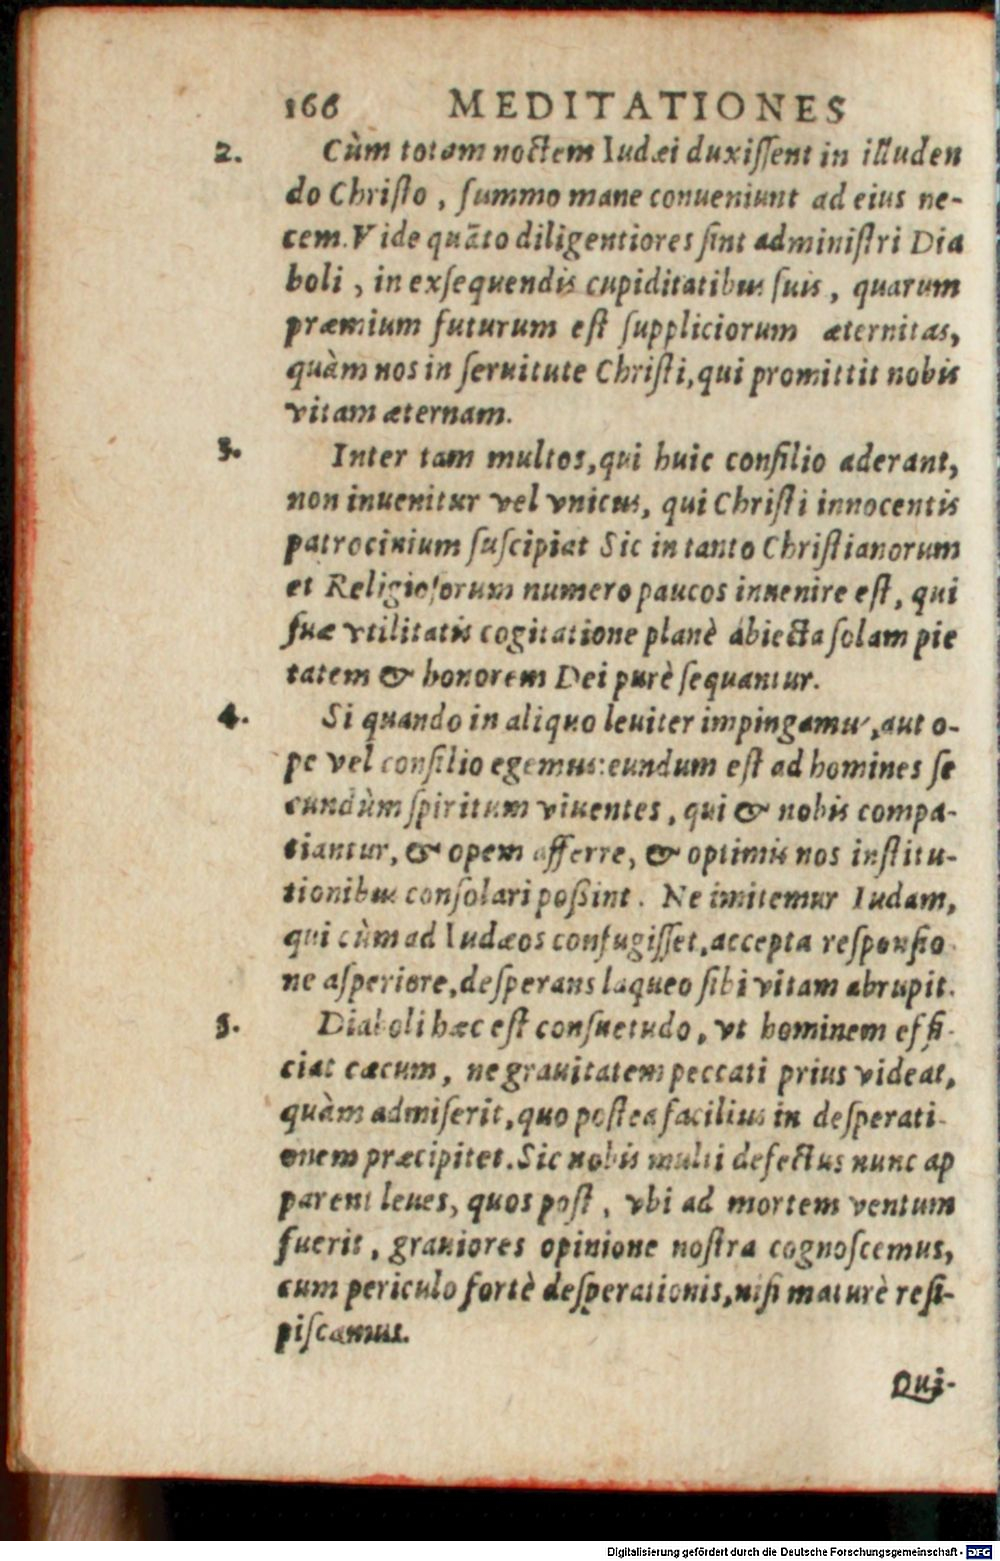 166 MEDITATIONES
2. Cùm totam noctem Iudæi duxiſſent in illuden
do Chriſto, ſummo mane conueniunt ad eius ne-
cem. Vide quãto diligentiores ſint adminiſtri Dia
boli, in exſequendis cupiditatibus ſuis, quarum
præmium futurum eſt ſuppliciorum æternitas,
quàm nos in ſeruitute Chriſti, qui promittit nobis
vitam æternam.
3. Inter tam multos, qui huic conſilio aderant,
non inuenitur vel vnicus, qui Chriſti innocentis
patrocinium ſuſcipiat Sic in tanto Chriſtianorum
et Religioſorum numero paucos inuenire eſt, qui
ſuæ vtilitatis cogitatione planè abiecta ſolam pie
tatem & honorem Dei purè ſequantur.
4. Si quando in aliquo leuiter impingamus, aut o-
pe vel conſilio egemus: eundum eſt ad homines ſe
cundùm ſpiritum viuentes, qui & nobis compa-
tiantur, & opem afferre, & optimis nos inſtitu-
tionibus conſolari poßint. Ne imitemur Iudam,
qui cùm ad Iudæos confugiſſet, accepta reſponſio
ne aſperiore, deſperans laqueo ſibi vitam abrupit.
5. Diaboli hæc eſt conſuetudo, vt hominem effi-
ciat cæcum, ne grauitatem peccati prius videat,
quàm admiſerit, quo poſtea facilius in deſperati-
onem præcipitet. Sic nobis multi defectus nunc ap
parent leues, quos poſt, vbi ad mortem ventum
fuerit, grauiores opinione noſtra cognoſcemus,
cum periculo fortè deſperationis, niſi maturè reſi-
piſcamus.
Qui-
Digitalisierung gefördert durch die Deutsche Forschungsgemeinschaft - DFG